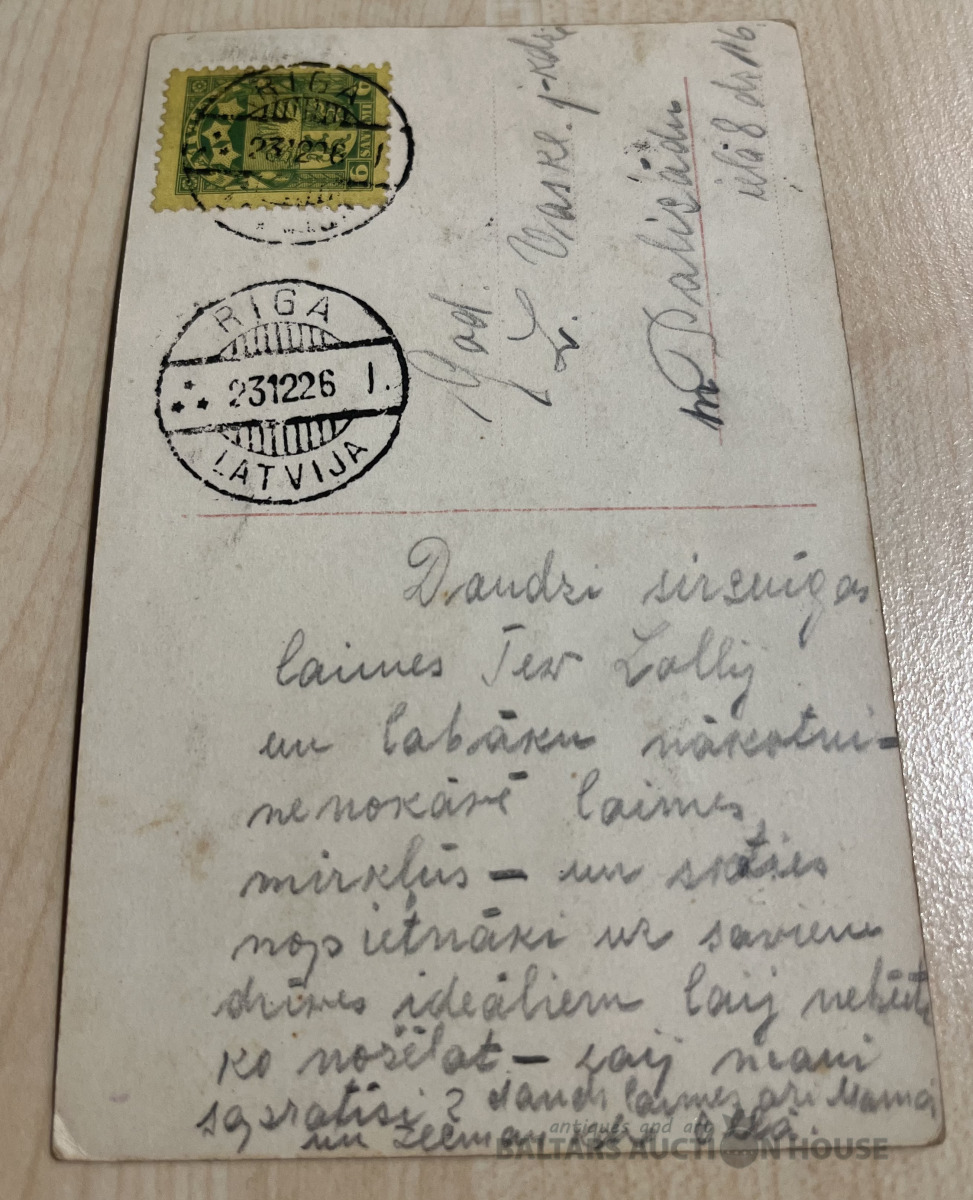 RIGA
231226 I
RIGA
231226 I.
LATVIJA
God.
L. Vaskl. j-kdz
Palisādu
ielā 8 dz. 116.
Daudzi sirsnigas
laimes Tew Lollij
un labāku nākotni-
nenokāvē laimes
mirklūs — un skaties
nopietnāki uz saviem
dzīves ideāliem laij nebūtu
ko nožēlot — vaij mani
sapratīsi? daudz laimes arī Mamai
un
antiques and art
BALTARS AUCTION HOUSE